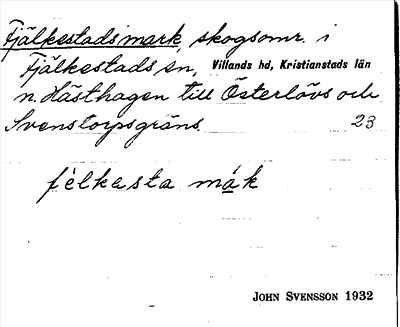 Fjälkestadsmark, skogsomr. i
Fjälkestads sn, Villands hd, Kristianstads län
n. Hästhagen till Österlövs och
Svenstorpsgräns. 23
fèlkesta mák
JOHN SVENSSON 1932